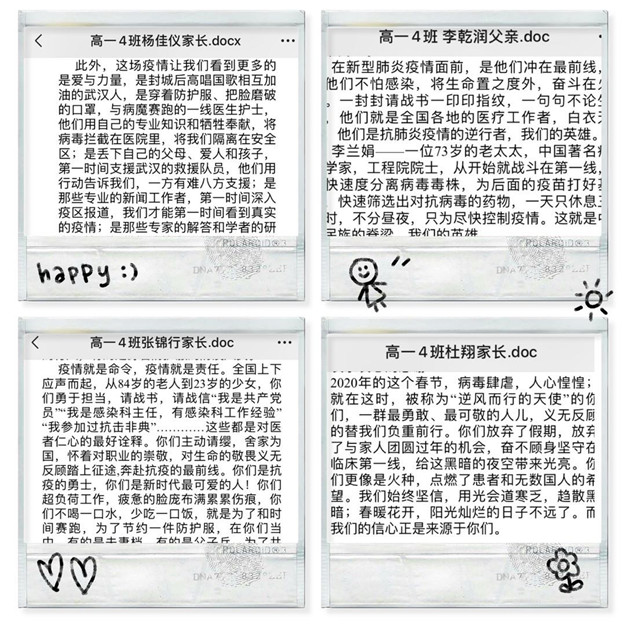 高一4班杨佳仪家长.docx
此外，这场疫情让我们看到更多的
是爱与力量，是封城后高唱国歌相互加
油的武汉人，是穿着防护服、把脸磨破
的口罩，与病魔赛跑的一线医生护士，
他们用自己的专业知识和牺牲奉献，将
病毒拦截在医院里，将我们隔离在安全
区；是丢下自己的父母、爱人和孩子，
第一时间支援武汉的救援队员，他们用
行动告诉我们，一方有难八方支援；是
那些专业的新闻工作者，第一时间深入
疫区报道，我们才能第一时间看到真实
的疫情；是那些专家的解答和学者的研
happy :)
高一4班 李乾润父亲.doc
在新型肺炎疫情面前，是他们冲在最前线，
他们不怕感染，将生命置之度外，奋斗在
一封封请战书一印印指纹，一句句不论
他们就是全国各地的医疗工作者，白衣
他们是抗肺炎疫情的逆行者，我们的英雄。
李兰娟——一位73岁的老太太，中国著名
学家，工程院院士，从开始就战斗在第一线，
快速度分离病毒毒株，为后面的疫苗打好
快速筛选出对抗病毒的药物，一天只休息
时，不分昼夜，只为尽快控制疫情。这就是
民族的脊梁，我们的英雄。
高一4班张锦行家长.doc
疫情就是命令，疫情就是责任。全国上下
应声而起，从84岁的老人到23岁的少女，你
们勇于担当，请战书，请战信“我是共产党
员”“我是感染科主任，有感染科工作经验”
“我参加过抗击非典”…………这些都是对医
者仁心的最好诠释。你们主动请缨，舍家为
国，怀着对职业的崇敬，对生命的敬畏义无
反顾踏上征途,奔赴抗疫的最前线。你们是抗
疫的勇士，你们是新时代最可爱的人！你们
超负荷工作，疲惫的脸庞布满累累伤痕，你
们不喝一口水，少吃一口饭，就是为了和时
间赛跑，为了节约一件防护服，在你们当
中，有的是夫妻档，有的是父子兵，为了共
高一4班杜翔家长.doc
2020年的这个春节，病毒肆虐，人心惶惶；
就在这时，被称为“逆风而行的天使”的你
们，一群最勇敢、最可敬的人儿，义无反顾
的替我们负重前行。你们放弃了假期，放弃
了与家人团圆过年的机会，奋不顾身坚守在
临床第一线，给这黑暗的夜空带来光亮。你
们更像是火种，点燃了患者和无数国人的希
望。我们始终坚信，用光会道寒乏，趋散黑
暗；春暖花开，阳光灿烂的日子不远了。而
我们的信心正是来源于你们。